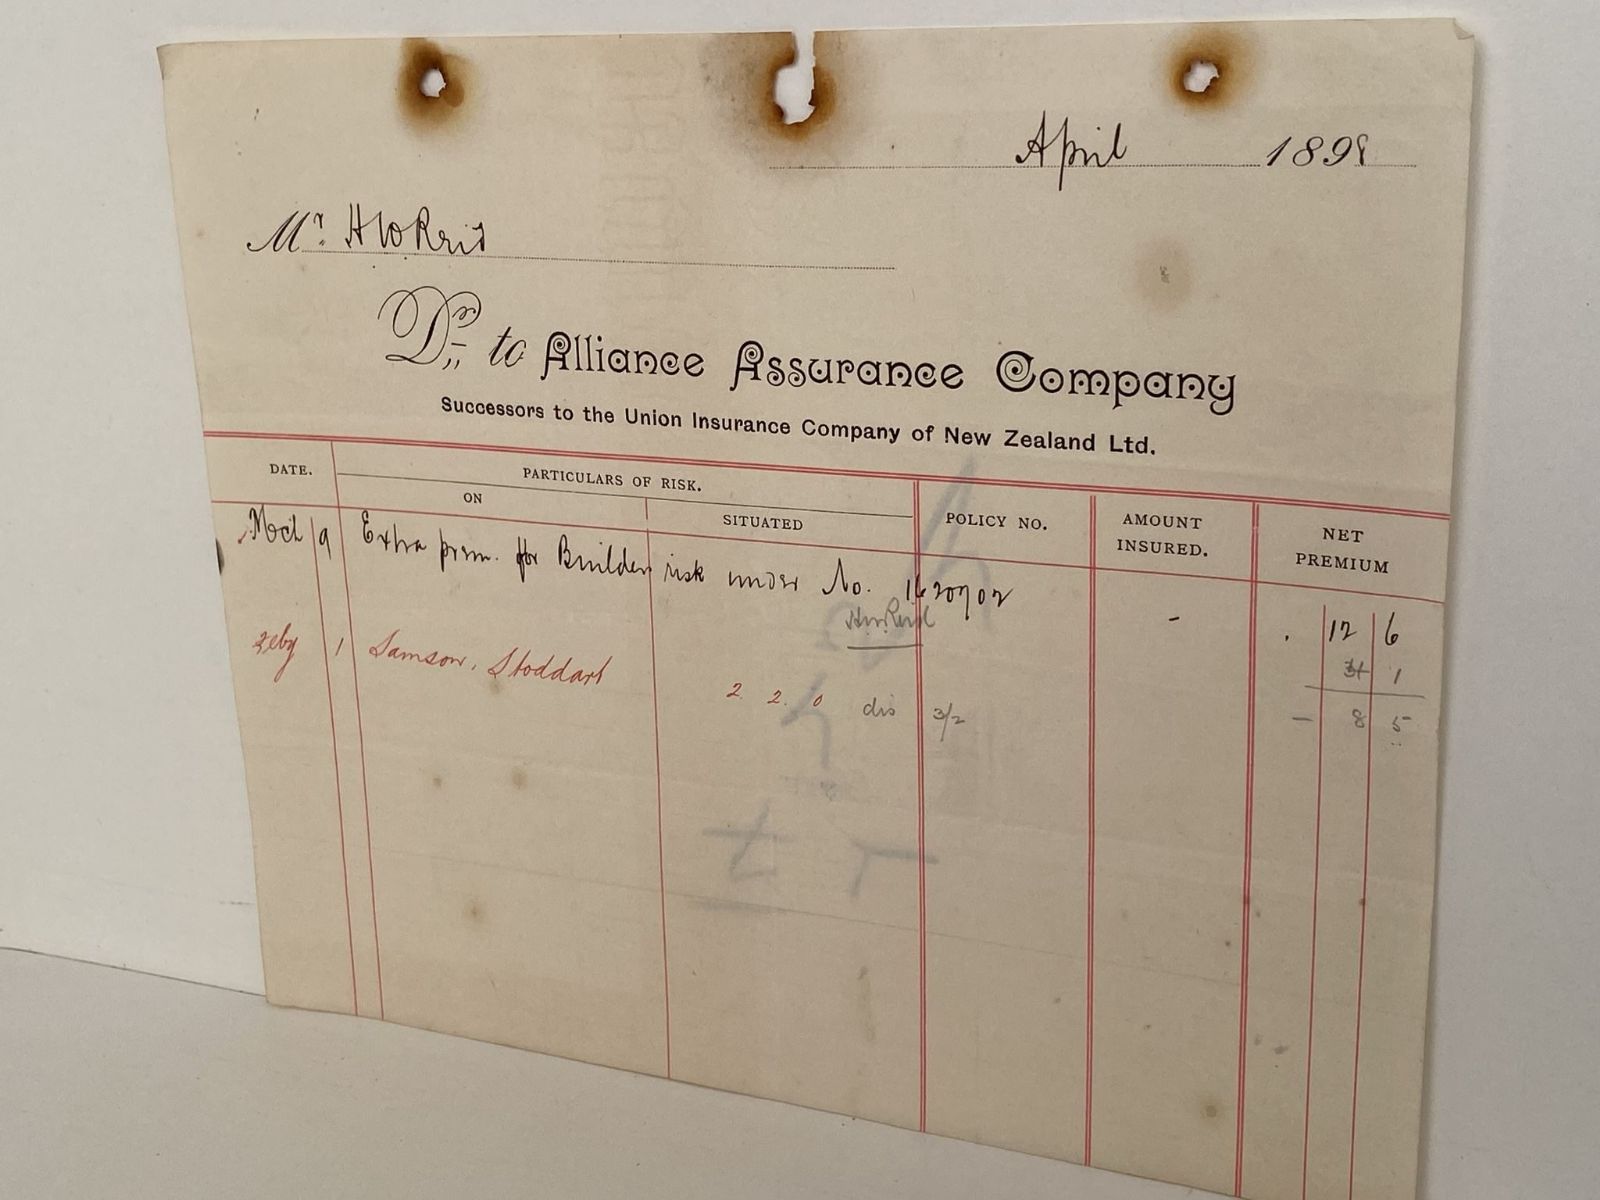 April 1898
Mr. H W Reid
Dr. to Alliance Assurance Company
Successors to the Union Insurance Company of New Zealand Ltd.
DATE. PARTICULARS OF RISK. POLICY NO. AMOUNT INSURED. NET PREMIUM
ON SITUATED
Mch 9 Extra prem. for Builders risk under No. 1620702 - . 12 6
HW Reid
Feby 1 Samson, Stoddart 1
2 2. 0 dis 3/2 - 8 5